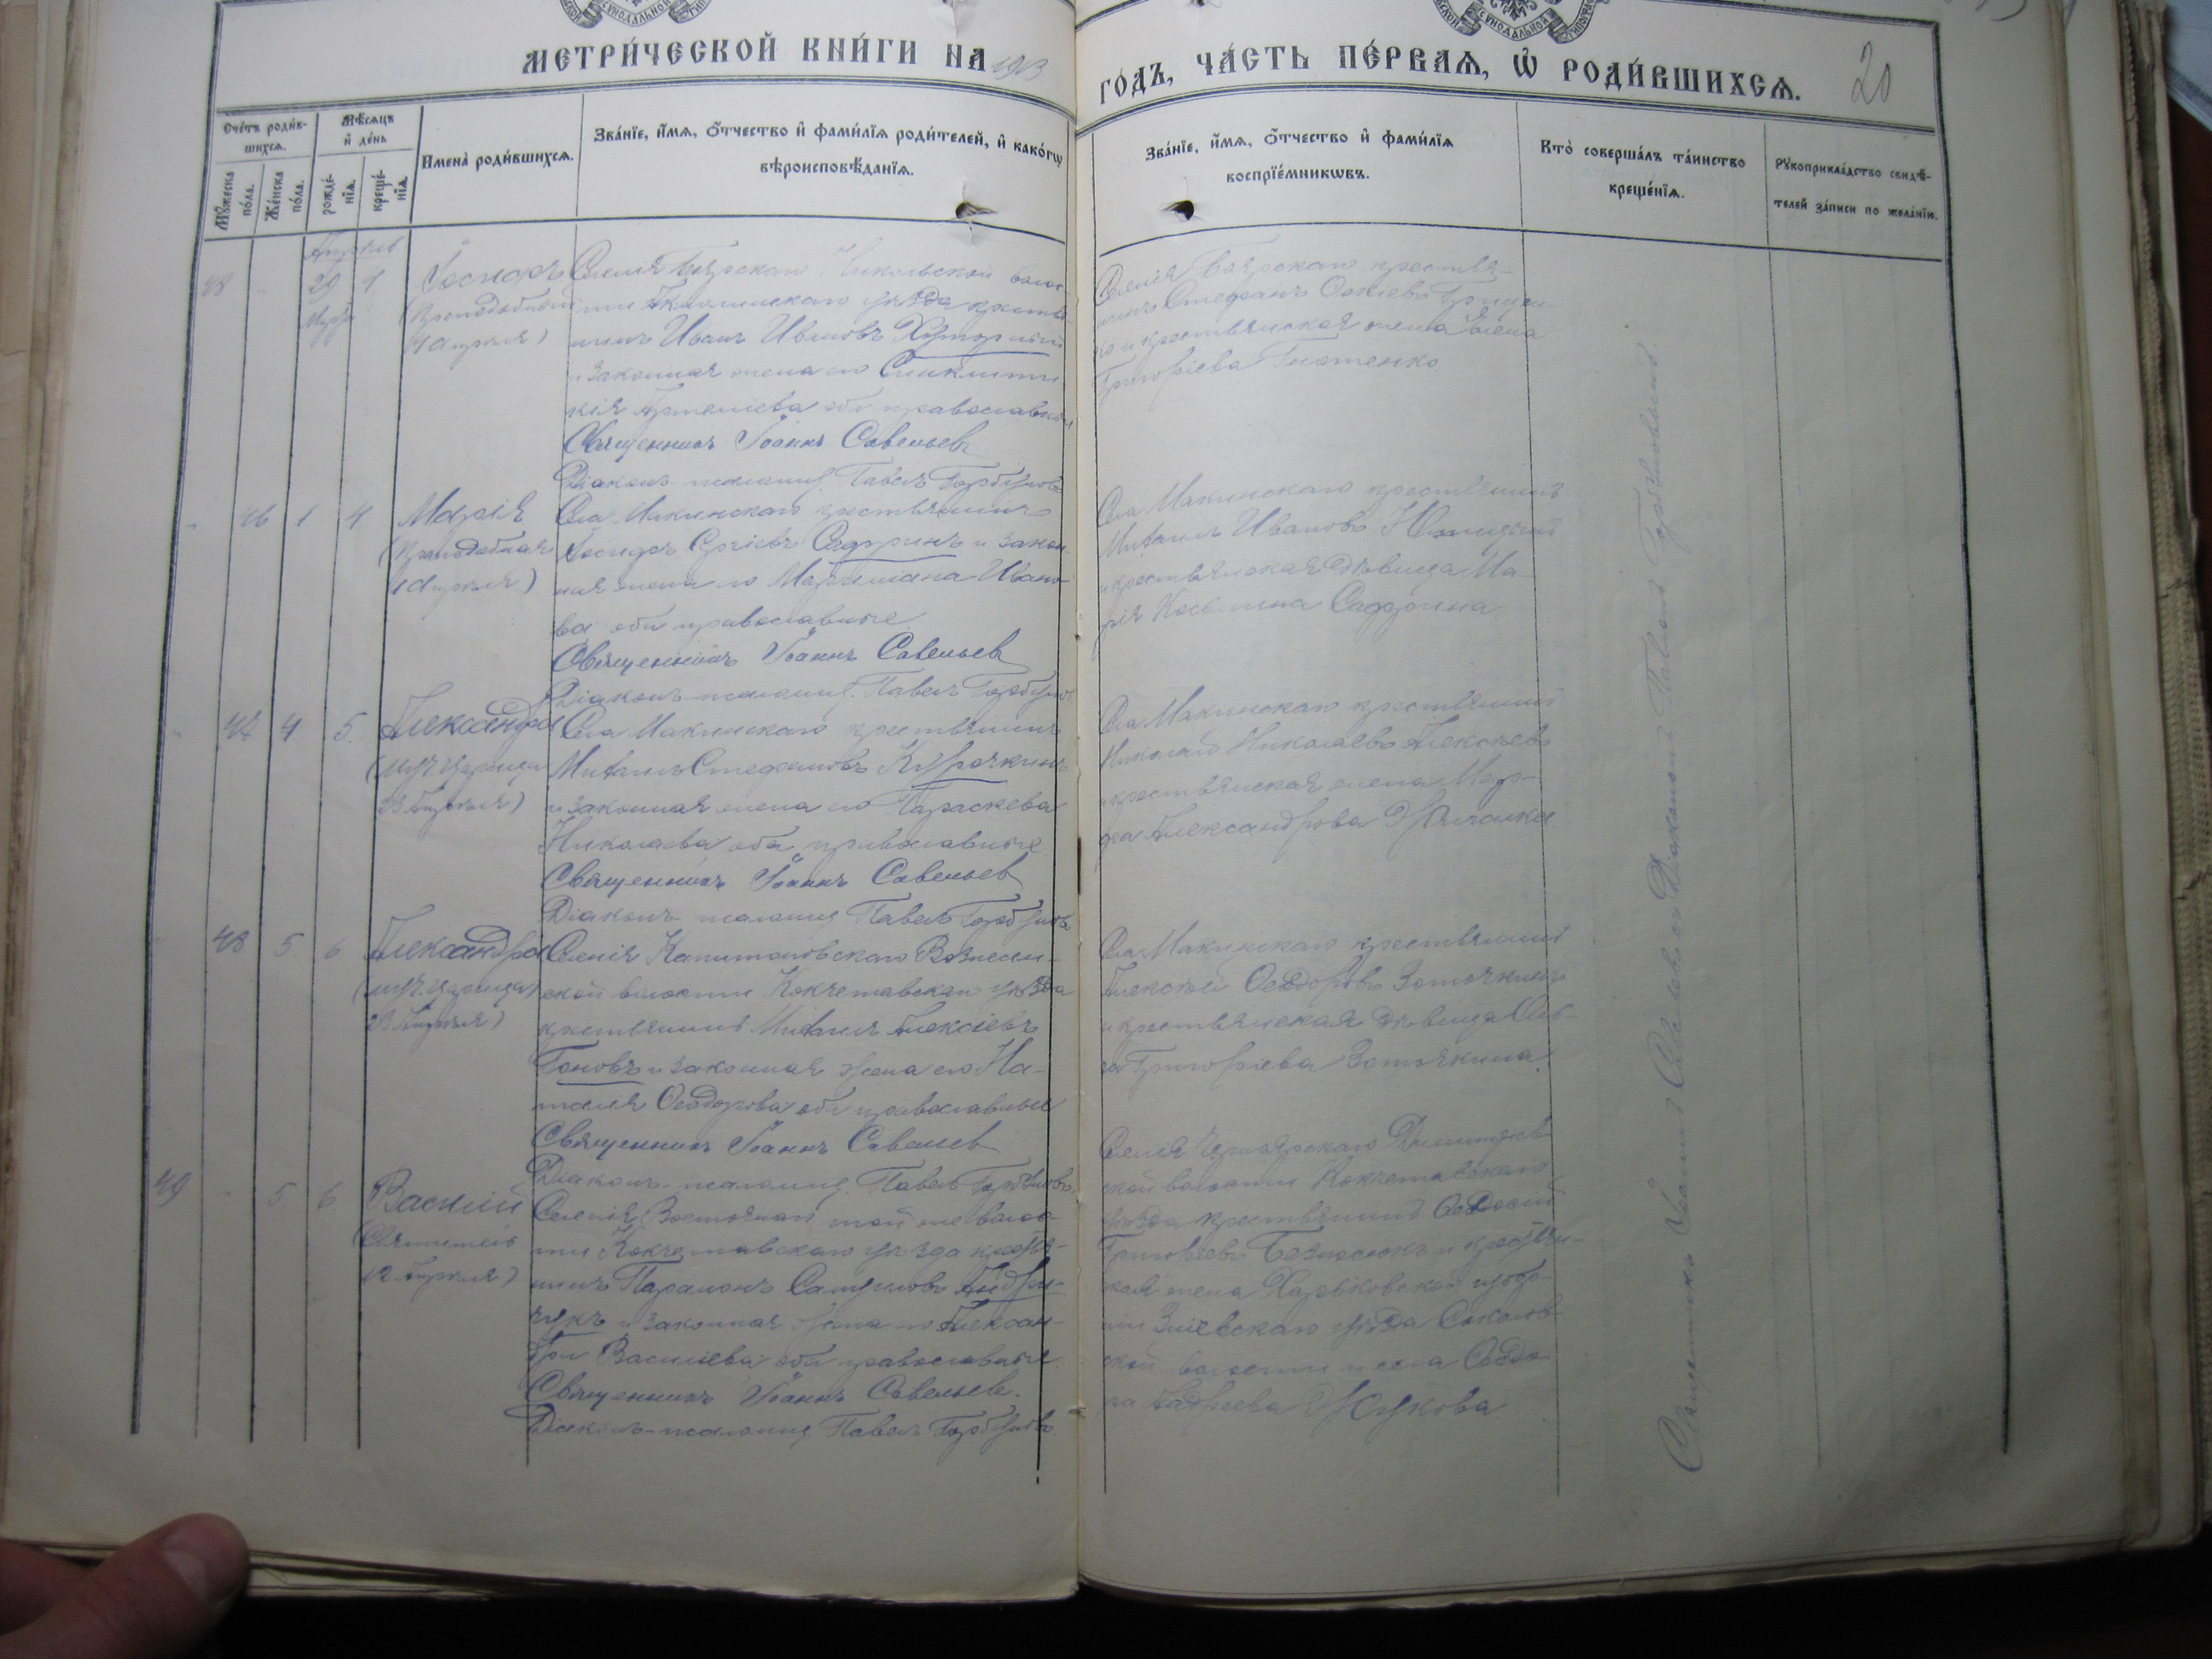 МЕТРИ́ЧЕСКОЙ КНИ́ГИ НА 1913
ГО́ДЪ, ЧА́СТЬ ПЕ́РВАѦ, Ѡ҆ РОДИ́ВШИХСѦ.
20
Сче́тъ роди́в-
шихсѧ.
Мѣ́сѧцъ
и҆ де́нь
Мꙋ́жеска
по́ла.
Же́нска
по́ла.
рожде́-
нїѧ.
креще́-
нїѧ.
И҆мена̀ роди́вшихсѧ.
Зва́нїе, и҆́мѧ, ѻ҆́тчество и҆ фами́лїѧ роди́телей, и҆ како́гѡ
вѣроисповѣ́данїѧ.
Зва́нїе, и҆́мѧ, ѻ҆́тчество и҆ фами́лїѧ
воспрїе́мникѡвъ.
Кто̀ соверша́лъ та́инство
креще́нїѧ.
Рꙋкоприкла́дство свидѣ́-
телей за́писи по жела́нїю.
Апрѣль
48 - 29 1 Іосифъ
Марта
(Преподобный
4 Апрѣля)
Селенія Боярскаго Никольской волос-
ти Акмолинскаго уѣзда крестья-
нинъ Иванъ Ивановъ Хуторный
и законная жена его Синклити-
кія Артеміева оба православные
Священникъ Іоаннъ Савельевъ
Діаконъ-псаломщ. Павелъ Горбуновъ
Селенія Боярскаго крестья-
нинъ Стефанъ
и крестьянская жена Елена
Григоріева Гнатенко
- 46 1 4 Марія
(Преподобная
1 Апрѣля)
Села Макинскаго крестьянинъ
Іосифъ Сергіевъ Сафринъ и закон-
ная жена его Мариміана Ивано-
ва оба православные
Священникъ Іоаннъ Савельевъ
Діаконъ-псаломщ. Павелъ Горбуновъ
Села Макинскаго крестьянинъ
Михаилъ Ивановъ
и крестьянская дѣвица Ма-
рія Космина Сафрина
- 47 4 5 Александра
(муч. царица
23 Апрѣля)
Села Макинскаго крестьянинъ
Михаилъ Стефановъ Курочкинъ
и законная жена его Параскева
Николаева оба православные
Священникъ Іоаннъ Савельевъ
Діаконъ-псаломщ. Павелъ Горбуновъ
Села Макинскаго крестьянинъ
Николай Николаевъ Алексѣевъ
и крестьянская жена Мар-
фа Александрова
48 5 6 Александра
(муч. царица
23 Апрѣля)
Селенія Капитоновскаго Вознесен-
ской волости Кокчетавскаго уѣзда
крестьянинъ Михаилъ Алексіевъ
Поповъ и законная жена его На-
талія Ѳеодорова оба православные
Священникъ Іоаннъ Савельевъ
Діаконъ-псаломщ. Павелъ Горбуновъ
Села Макинскаго крестьянинъ
Алексѣй Ѳеодоровъ Зотячкинъ
и крестьянская дѣвица Оль-
га Григоріева Зотячкина
49 - 5 6 Василій
(Святитель
12 Апрѣля)
Селенія Восточнаго той же волос-
ти Кокчетавскаго уѣзда крестья-
нинъ Парамонъ Самуиловъ Андри-
чукъ и законная жена его Алексан-
дра Василіева оба православные
Священникъ Іоаннъ Савельевъ
Діаконъ-псаломщ. Павелъ Горбуновъ
Селенія Черноярскаго Димитріев-
ской волости Кокчетавскаго
уѣзда крестьянинъ Ѳеодосій
Григоріевъ и крестьян-
ская жена Харьковской губер-
ніи Зміевскаго уѣзда Соколов-
ской волости и села Ѳеодо-
ра Андреева Жукова
Священникъ Іоаннъ Савельевъ съ Діакономъ Павломъ Горбуновымъ.